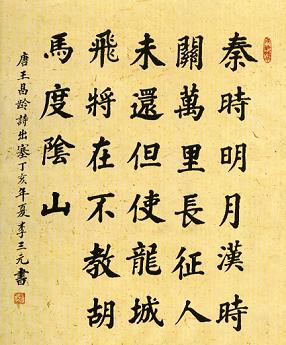 秦時明月漢時
關萬里長征人
未還但使龍城
飛將在不教胡
馬度陰山
唐王昌龄詩出塞丁亥年夏李三元書